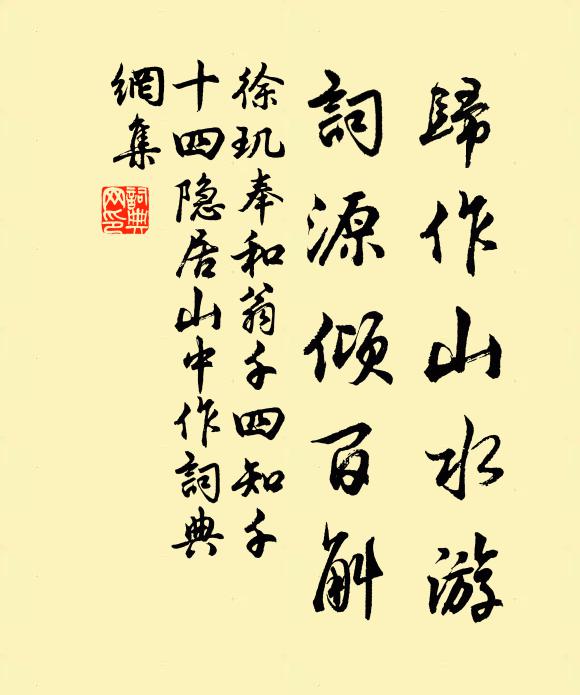 歸作山水游
詞源倾百斛
徐玑奉和翁千四知千
十四隐居山中作詞典
網集
詞典网印